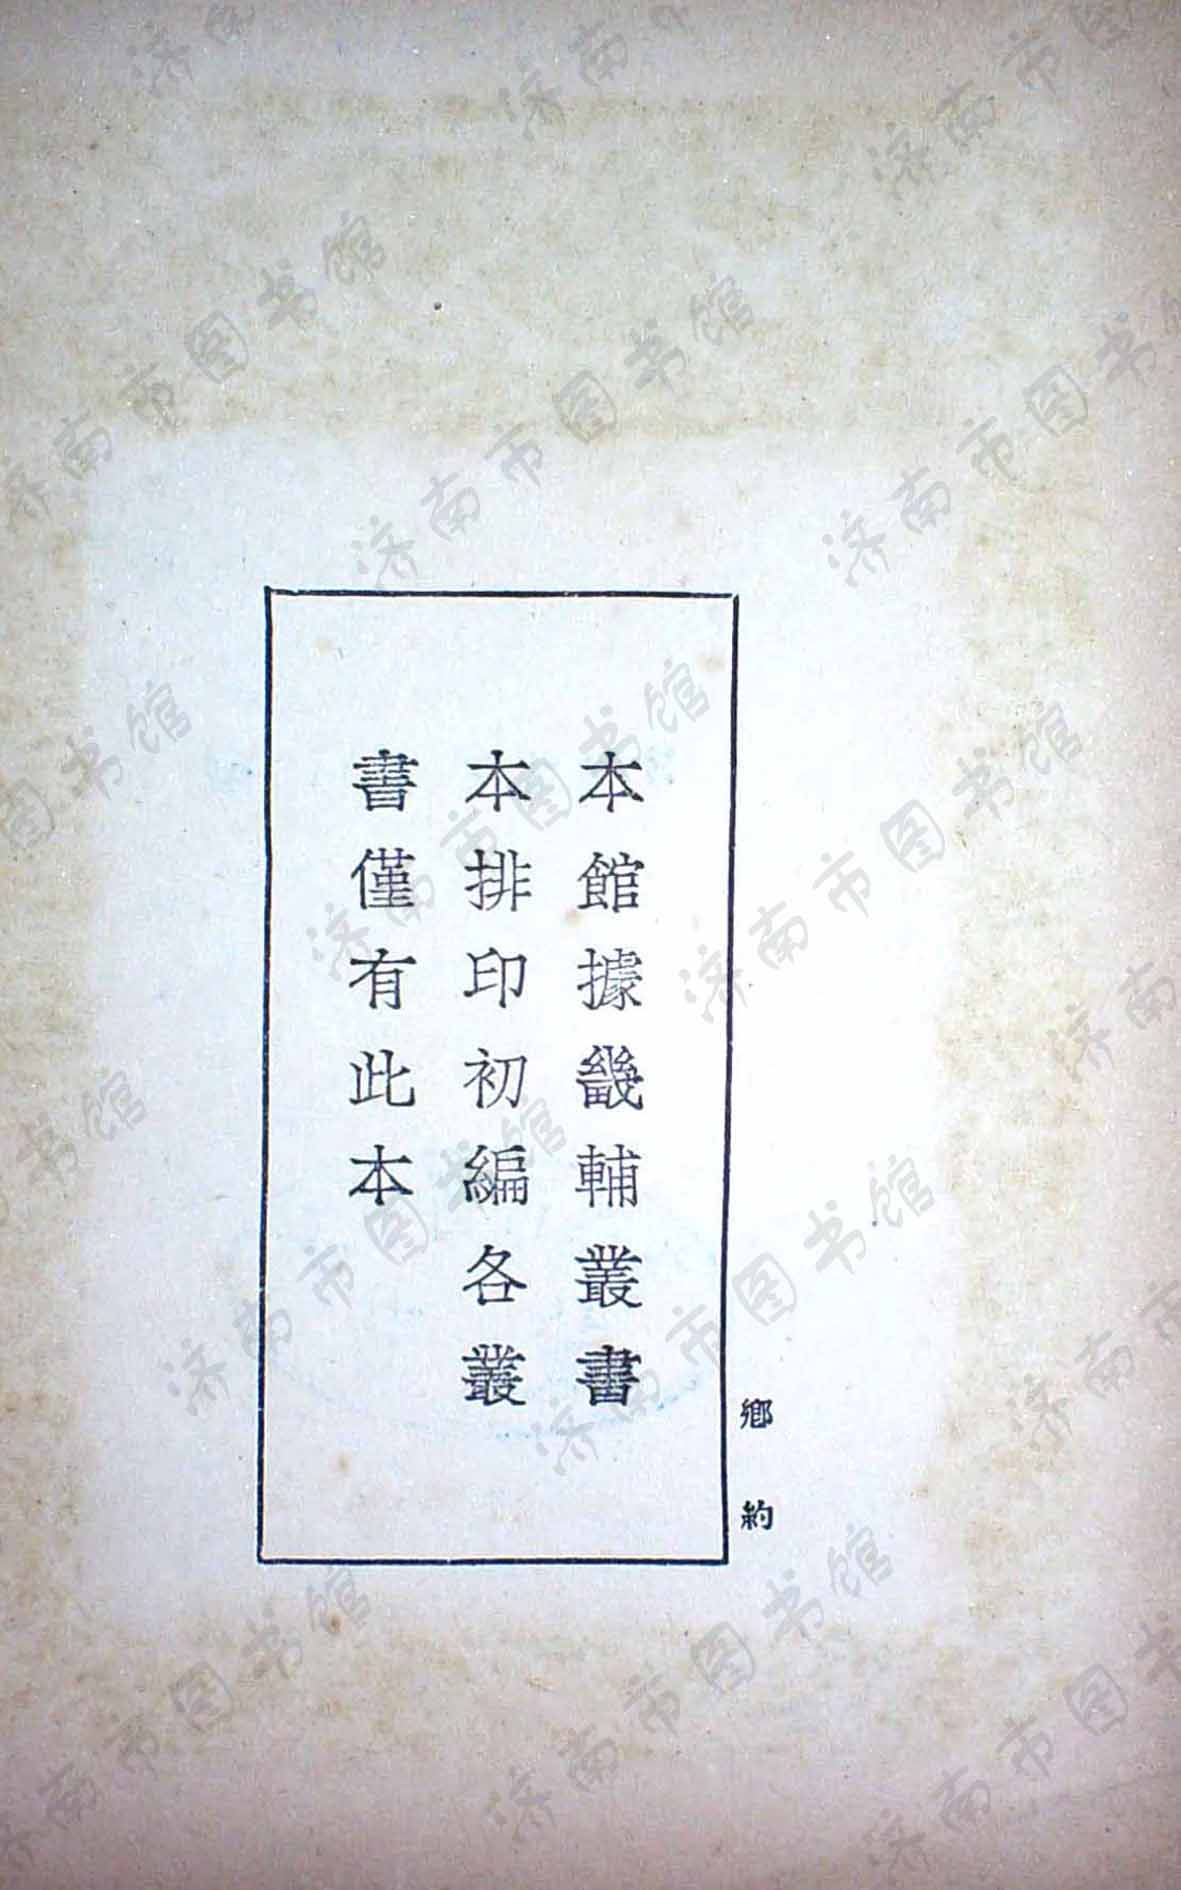 鄉約
本館據畿輔叢書
本排印初編各叢
書僅有此本
济南市图书馆